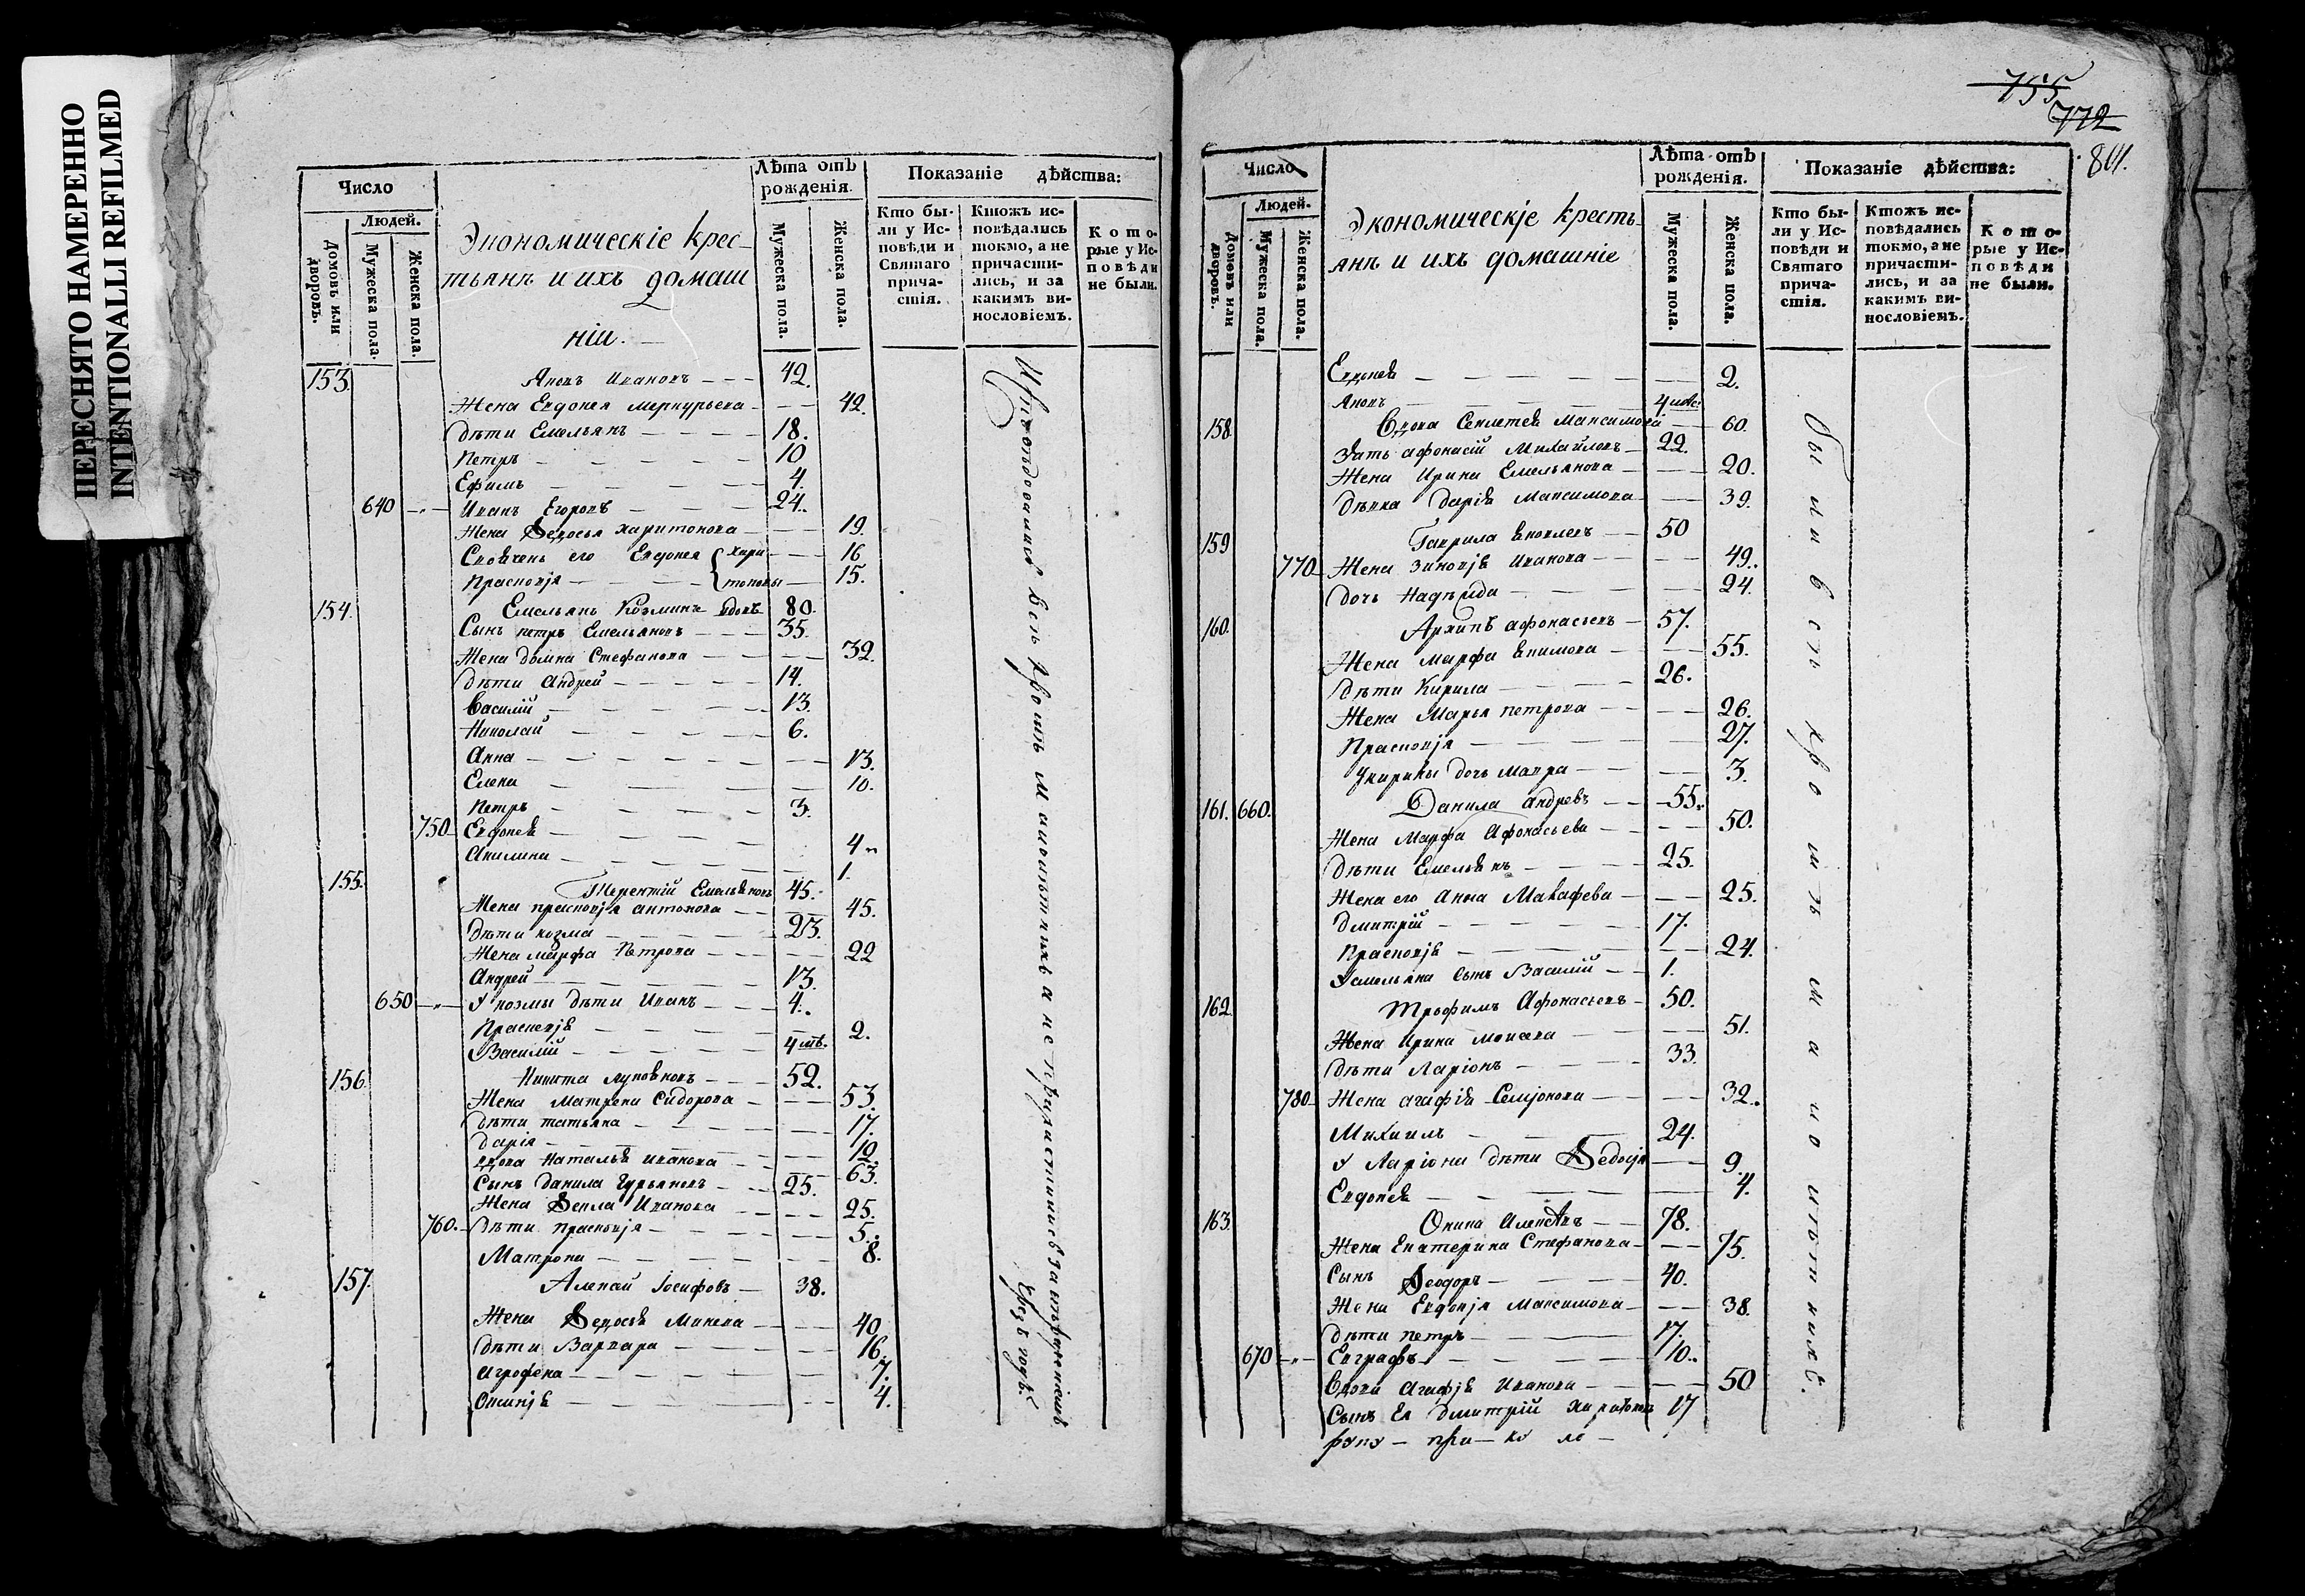 ПЕРЕСНЯТО НАМЕРЕННО
INTENTIONALLI REFILMED
Число
Людей.
Домовъ или дворовъ.
Мужеска пола.
Женска пола.
Экономическіе крес-
тьянъ и ихъ домаш
ніи.
Лѣта отъ рожденія.
Мужеска пола.
Женска пола.
Показаніе дѣйства:
Кто бы-
ли у Ис-
повѣди и
Святаго
прича-
стія.
Ктожъ ис-
повѣдались
токмо, а не
причасти-
лись, и за
какимъ ви-
нословіемъ.
Кото-
рые у Ис-
повѣди
не были.
153. Ивановъ 42.
Жена Евдокея Меркурьева 42.
Дѣти Емельянъ 18.
Петръ 10
Ефимъ 4.
640 Иванъ Егоровъ 24.
Жена Ѳедосья Харитонова 19.
его Евдокея Хари 16
Прасковія тоновы 15.
154. Емельянъ Козминъ вдовъ 80.
Сынъ Петръ Емельяновъ 35.
Жена Домна Стефанова 32.
Дѣти Андрей 14.
Василій 13.
Николай 6.
Анна 13.
Елена 10.
Петръ 3.
750 Евдокея 4
Акилина 1.
155. Терентій Емельяновъ 45.
Жена Прасковія Антонова 45.
Дѣти Козма 23.
Жена Марфа Петрова 22
Андрей 13.
650 У Козмы дѣти Иванъ 4.
Прасковія 2.
Василій 4
156. Никита 52.
Жена Матрена Сидорова 53.
Дѣти Татьяна 17.
Дарія 12.
Вдова Наталья Иванова 63.
Сынъ Данила Гурьяновъ 25.
Жена Ѳекла Иванова 25.
760. Дѣти Прасковія 5.
Матрона 8.
157. Алексѣй Іосифовъ 38.
Жена Ѳедосья 40
Дѣти Варвара 16.
Агрофена 7.
Оксинія 4.
Исповѣдовались всѣ кромѣ малолѣтныхъ а не причастились за
755
772
801.
Число
Людей.
Домовъ или дворовъ.
Мужеска пола.
Женска пола.
Экономическіе кресть-
янъ и ихъ домашніе
Лѣта отъ рожденія.
Мужеска пола.
Женска пола.
Показаніе дѣйства:
Кто бы-
ли у Ис-
повѣди и
Святаго
прича-
стія.
Ктожъ ис-
повѣдались
токмо, а не
причасти-
лись, и за
какимъ ви-
нословіемъ.
Кото-
рые у Ис-
повѣди
не были.
Евдокея 2.
4
158 Вдова Максимова 60.
Зять Афонасій Михайловъ 22.
Жена Ирина Емельянова 20.
Дѣвка Дарія Максимова 39.
159 Гаврила Яковлевъ 50
770 Жена Зиновія Иванова 49.
Дочь Надежда 24.
160. Архипъ Афонасьевъ 57.
Жена Марфа Екимова 55.
Дѣти Кирила 26.
Жена Марья Петрова 26.
Прасковія 27.
У Кирилы дочь Мавра 3.
161. 660. Данила Андревъ 55.
Жена Марфа Афонасьева 50.
Дѣти Емельянъ 25.
Жена его Анна Макафева 25.
Дмитрій 17.
Прасковія 24.
У Емельяна сынъ Василій 1.
162 Трофимъ Афонасьевъ 50.
Жена Ирина 51.
Дѣти Ларіонъ 33.
780 Жена Агафія Семіонова 32.
Михаилъ 24.
У Ларіона дѣти Ѳедосія 9.
Евдокея 4.
163. 78.
Жена Екатерина Стефанова 75.
Сынъ Ѳеодоръ 40.
Жена Евдокія Максимова 38.
Дѣти Петръ 17.
670 Евграфъ 10.
Вдова Агафія Иванова 50
Сынъ Ея Дмитрій 17
руку при ло
Были всѣ кромѣ малолѣтнихъ.